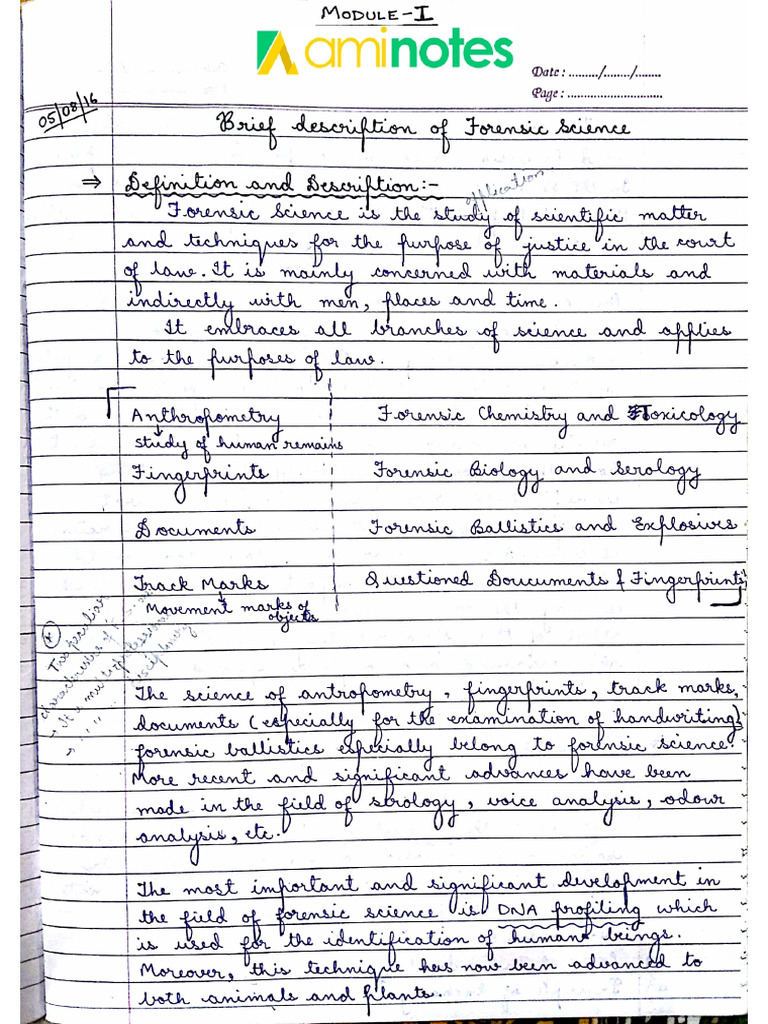 MODULE-I
aminotes
Date : ........./......../........
Page : .............................
05/08/16
Brief description of Forensic Science
⇒ Definition and Description:-
application
Forensic Science is the study of scientific matter
and techniques for the purpose of justice in the court
of law. It is mainly concerned with materials and
indirectly with men, places and time.
It embraces all branches of science and applies
to the purposes of law.
Anthropometry Forensic Chemistry and Toxicology
study of human remains
Fingerprints Forensic Biology and Serology
Documents Forensic Ballistics and Explosives
Track Marks Questioned Doucuments & Fingerprints
Movement marks of
objects
Two peculiar
characteristics of
It is multiprofessional
disciplinary
The science of antropometry, fingerprints, track marks,
documents (especially for the examination of handwriting)
forensic ballistics especially belong to forensic science.
More recent and significant advances have been
made in the field of serology, voice analysis, odour
analysis, etc.
The most important and significant development in
the field of forensic science is DNA profiling which
is used for the identification of human beings.
Moreover, this technique has now been advanced to
both animals and plants.